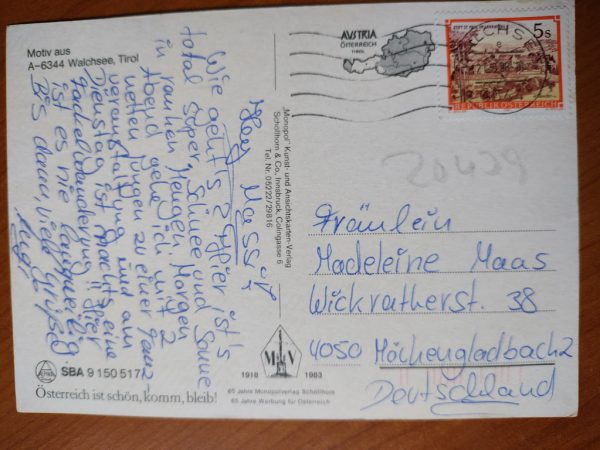 Motiv aus
A-6344 Walchsee, Tirol
Hey
Wie geht's? Hier ist's
total super, Schnee und Sonne
in rauhen Mengen. Morgen
Abend gehe ich mit 2
netten Jungen zu einer
veranstaltung und am
Dienstag ist eine
Fackelwanderung!! Hier
ist es nie langweilig.
Bis dann, viel Grüße!
SBA 9 150 517
Österreich ist schön, komm, bleib!
"Monopol" Kunst- und Ansichtskarten-Verlag
Schöllhorn & Co., Innsbruck, Colingasse 6
Tel. Nr. 05222/29816
M V
1918 1983
65 Jahre Monopolverlag Schöllhorn
65 Jahre Werbung für Österreich
AUSTRIA
ÖSTERREICH
TIROL
5 s
REPUBLIK ÖSTERREICH
20429
Fräulein
Madeleine Maas
Wickratherstr. 38
4050 Möchengladbach 2
Deutschland